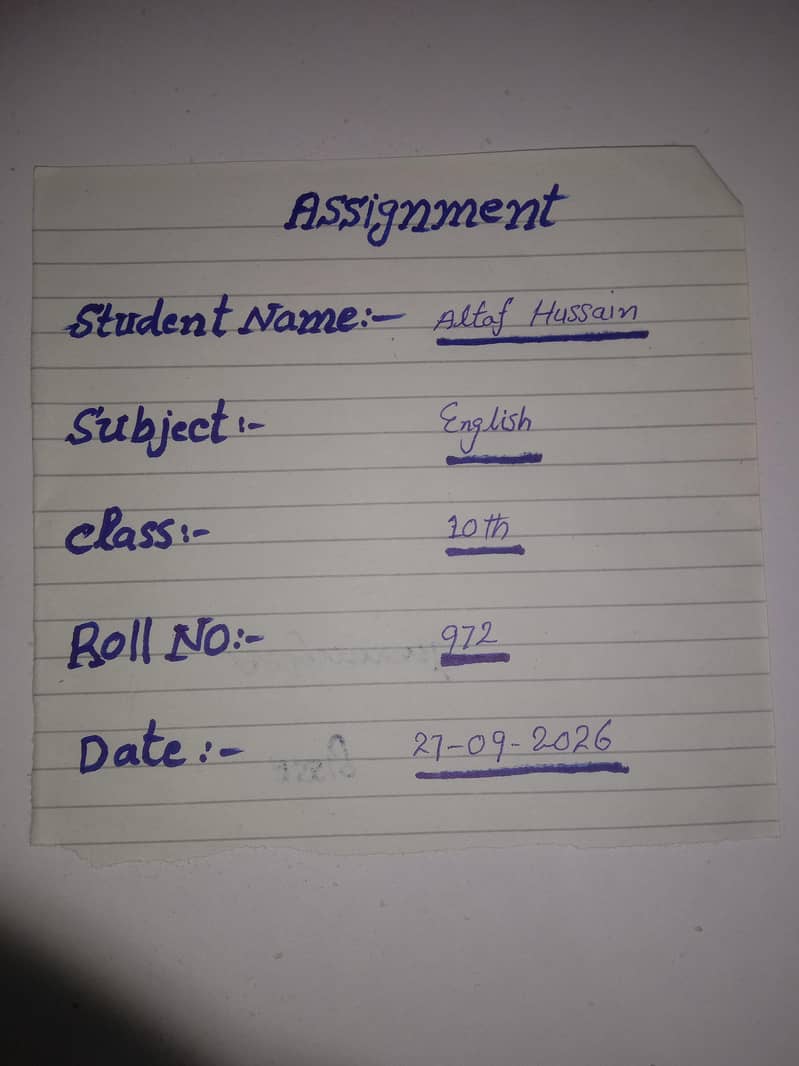 Assignment
Student Name:- Altaf Hussain
Subject:- English
Class:- 10th
Roll NO:- 972
Date:- 27-09-2026